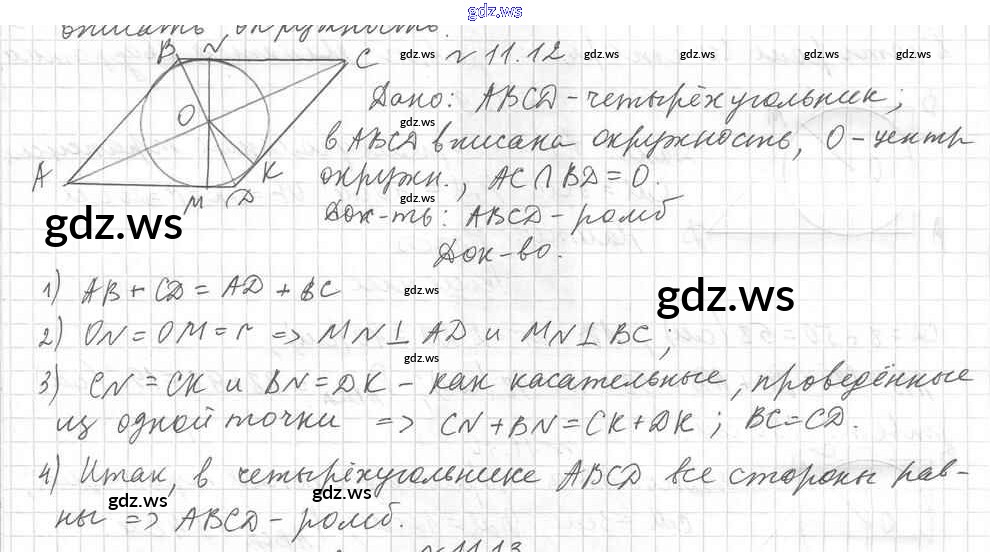 gdz.ws
вписать окружность.
B N C gdz.ws № 11.12 gdz.ws gdz.ws gdz.ws
Дано: ABCD - четырёхугольник;
O gdz.ws
в ABCD вписана окружность, O - центр
A K окружн., AC ∩ BD = O.
M D gdz.ws
gdz.ws Док-ть: ABCD - ромб
Док-во.
1) AB + CD = AD + BC gdz.ws gdz.ws
2) ON = OM = r => MN ⊥ AD и MN ⊥ BC;
gdz.ws
3) CN = CK и BN = DK - как касательные, проведённые
из одной точки => CN + BN = CK + DK; BC = CD.
4) Итак, в четырёхугольнике ABCD все стороны рав-
gdz.ws gdz.ws
ны => ABCD - ромб.
№ 11.13